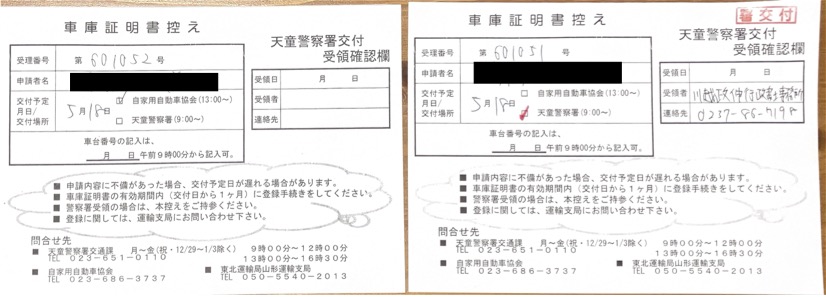 車庫証明書控え
天童警察署交付
受領確認欄
受理番号 第 601052 号
申請者名
交付予定
月日/
交付場所
5月18日
自家用自動車協会(13:00~)
天童警察署(9:00~)
受領日 月 日
受領者
連絡先
車台番号の記入は、
月 日 午前9時00分から記入可。
■ 申請内容に不備があった場合、交付予定日が遅れる場合があります。
■ 車庫証明書の有効期間内(交付日から1ヶ月)に登録手続きをしてください。
■ 警察署受領の場合は、本控えをご持参ください。
■ 登録に関しては、運輸支局にお問い合わせ下さい。
問合せ先
■ 天童警察署交通課 月~金(祝・12/29~1/3除く) 9時00分~12時00分
TEL 023-651-0110 13時00分~16時30分
■ 自家用自動車協会
TEL 023-686-3737
■ 東北運輸局山形運輸支局
TEL 050-5540-2013
車庫証明書控え
署交付
天童警察署交付
受領確認欄
受理番号 第 601051 号
申請者名
交付予定
月日/
交付場所
5月18日
自家用自動車協会(13:00~)
天童警察署(9:00~)
受領日 月 日
受領者 行政書士事務所
連絡先 0237-86-7198
車台番号の記入は、
月 日 午前9時00分から記入可。
■ 申請内容に不備があった場合、交付予定日が遅れる場合があります。
■ 車庫証明書の有効期間内(交付日から1ヶ月)に登録手続きをしてください。
■ 警察署受領の場合は、本控えをご持参ください。
■ 登録に関しては、運輸支局にお問い合わせ下さい。
問合せ先
■ 天童警察署交通課 月~金(祝・12/29~1/3除く) 9時00分~12時00分
TEL 023-651-0110 13時00分~16時30分
■ 自家用自動車協会
TEL 023-686-3737
■ 東北運輸局山形運輸支局
TEL 050-5540-2013